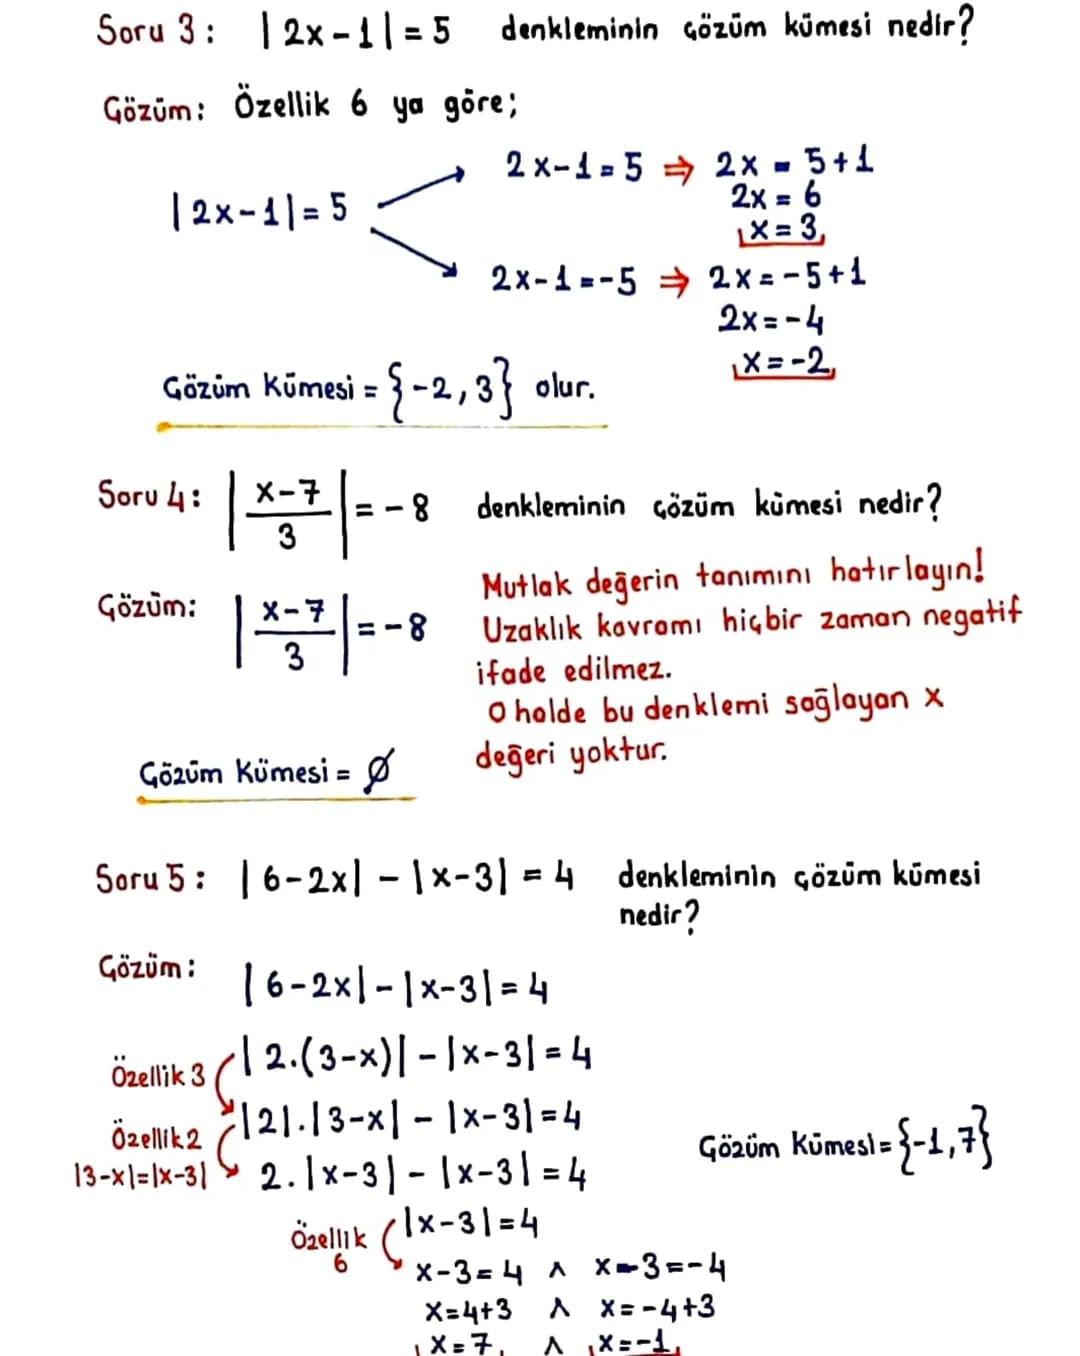 Soru 3: |2x-1| = 5 denkleminin çözüm kümesi nedir?
Çözüm: Özellik 6 ya göre;
|2x-1| = 5
2x-1 = 5 ⇒ 2x = 5+1
2x = 6
x = 3
2x-1 = -5 ⇒ 2x = -5+1
2x = -4
x = -2
Çözüm Kümesi = {-2, 3} olur.
Soru 4: |x-7 / 3| = -8 denkleminin çözüm kümesi nedir?
Çözüm: |x-7 / 3| = -8
Mutlak değerin tanımını hatırlayın!
Uzaklık kavramı hiçbir zaman negatif
ifade edilmez.
O halde bu denklemi sağlayan x
değeri yoktur.
Çözüm Kümesi = ∅
Soru 5: |6-2x| - |x-3| = 4 denkleminin çözüm kümesi
nedir?
Çözüm: |6-2x| - |x-3| = 4
|2.(3-x)| - |x-3| = 4
Özellik 3
|2|.|3-x| - |x-3| = 4
Özellik 2
|3-x|=|x-3|
2.|x-3| - |x-3| = 4
Çözüm Kümesi = {-1, 7}
|x-3| = 4
Özellik
6
x-3 = 4 ∧ x-3 = -4
x = 4+3 ∧ x = -4+3
x = 7 ∧ x = -1